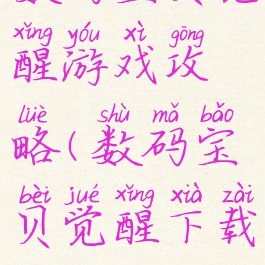 xǐng yóu xì gōng
醒游戏攻
lüè shù mǎ bǎo
略(数码宝
bèi jué xǐng xià zài
贝觉醒下载